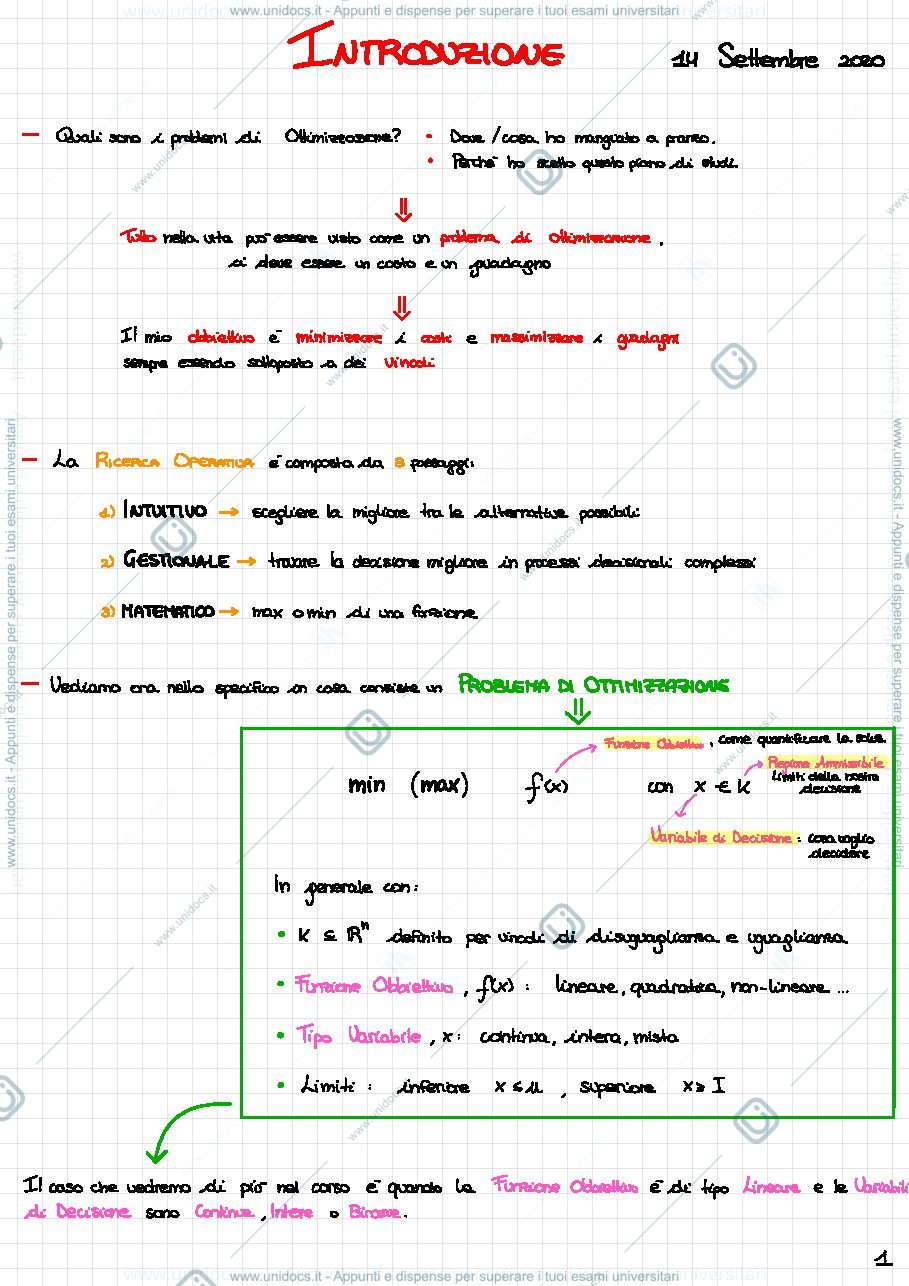 www.unidocs.it - Appunti e dispense per superare i tuoi esami universitari
INTRODUZIONE
14 Settembre 2020
— Quali sono i problemi di Ottimizzazione? • Dove / cosa ho mangiato a pranzo.
• Perché ho scelto questo piano di studi.
⇓
Tutto nella vita può essere visto come un problema di ottimizzazione,
ci deve essere un costo e un guadagno
⇓
Il mio obbiettivo è minimizzare i costi e massimizzare i guadagni
sempre essendo sottoposto a dei vincoli
— La RICERCA OPERATIVA è composta da 3 passaggi:
1) INTUITIVO → scegliere la migliore tra le alternative possibili
2) GESTIONALE → trovare la decisione migliore in processi decisionali complessi
3) MATEMATICO → max o min di una funzione
— Vediamo ora nello specifico in cosa consiste un PROBLEMA DI OTTIMIZZAZIONE
⇓
Funzione Obbiettivo, come quantificare la scelta
Regione Ammissibile
min (max) f(x) con x ∈ K Limiti della nostra
decisione
Variabile di Decisione: cosa voglio
decidere
In generale con:
• K ⊆ ℝⁿ definito per vincoli di disuguaglianza e uguaglianza
• Funzione Obbiettivo, f(x): lineare, quadratica, non-lineare ...
• Tipo Variabile, x: continua, intera, mista
• Limiti: inferiore x ≤ u, superiore x ≥ I
Il caso che vedremo di più nel corso è quando la Funzione Obbiettivo è di tipo Lineare e le Variabili
di Decisione sono Continue, Intere o Binarie.
1
www.unidocs.it - Appunti e dispense per superare i tuoi esami universitari